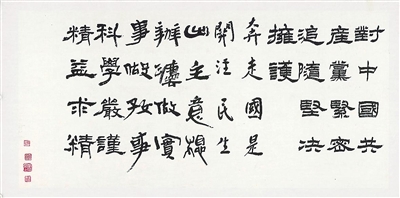 對中國共
産黨緊密
追隨堅决
擁護
奔走國是
關注民生
出主意想
辦灋做實
事做好事
科學嚴謹
精益求精